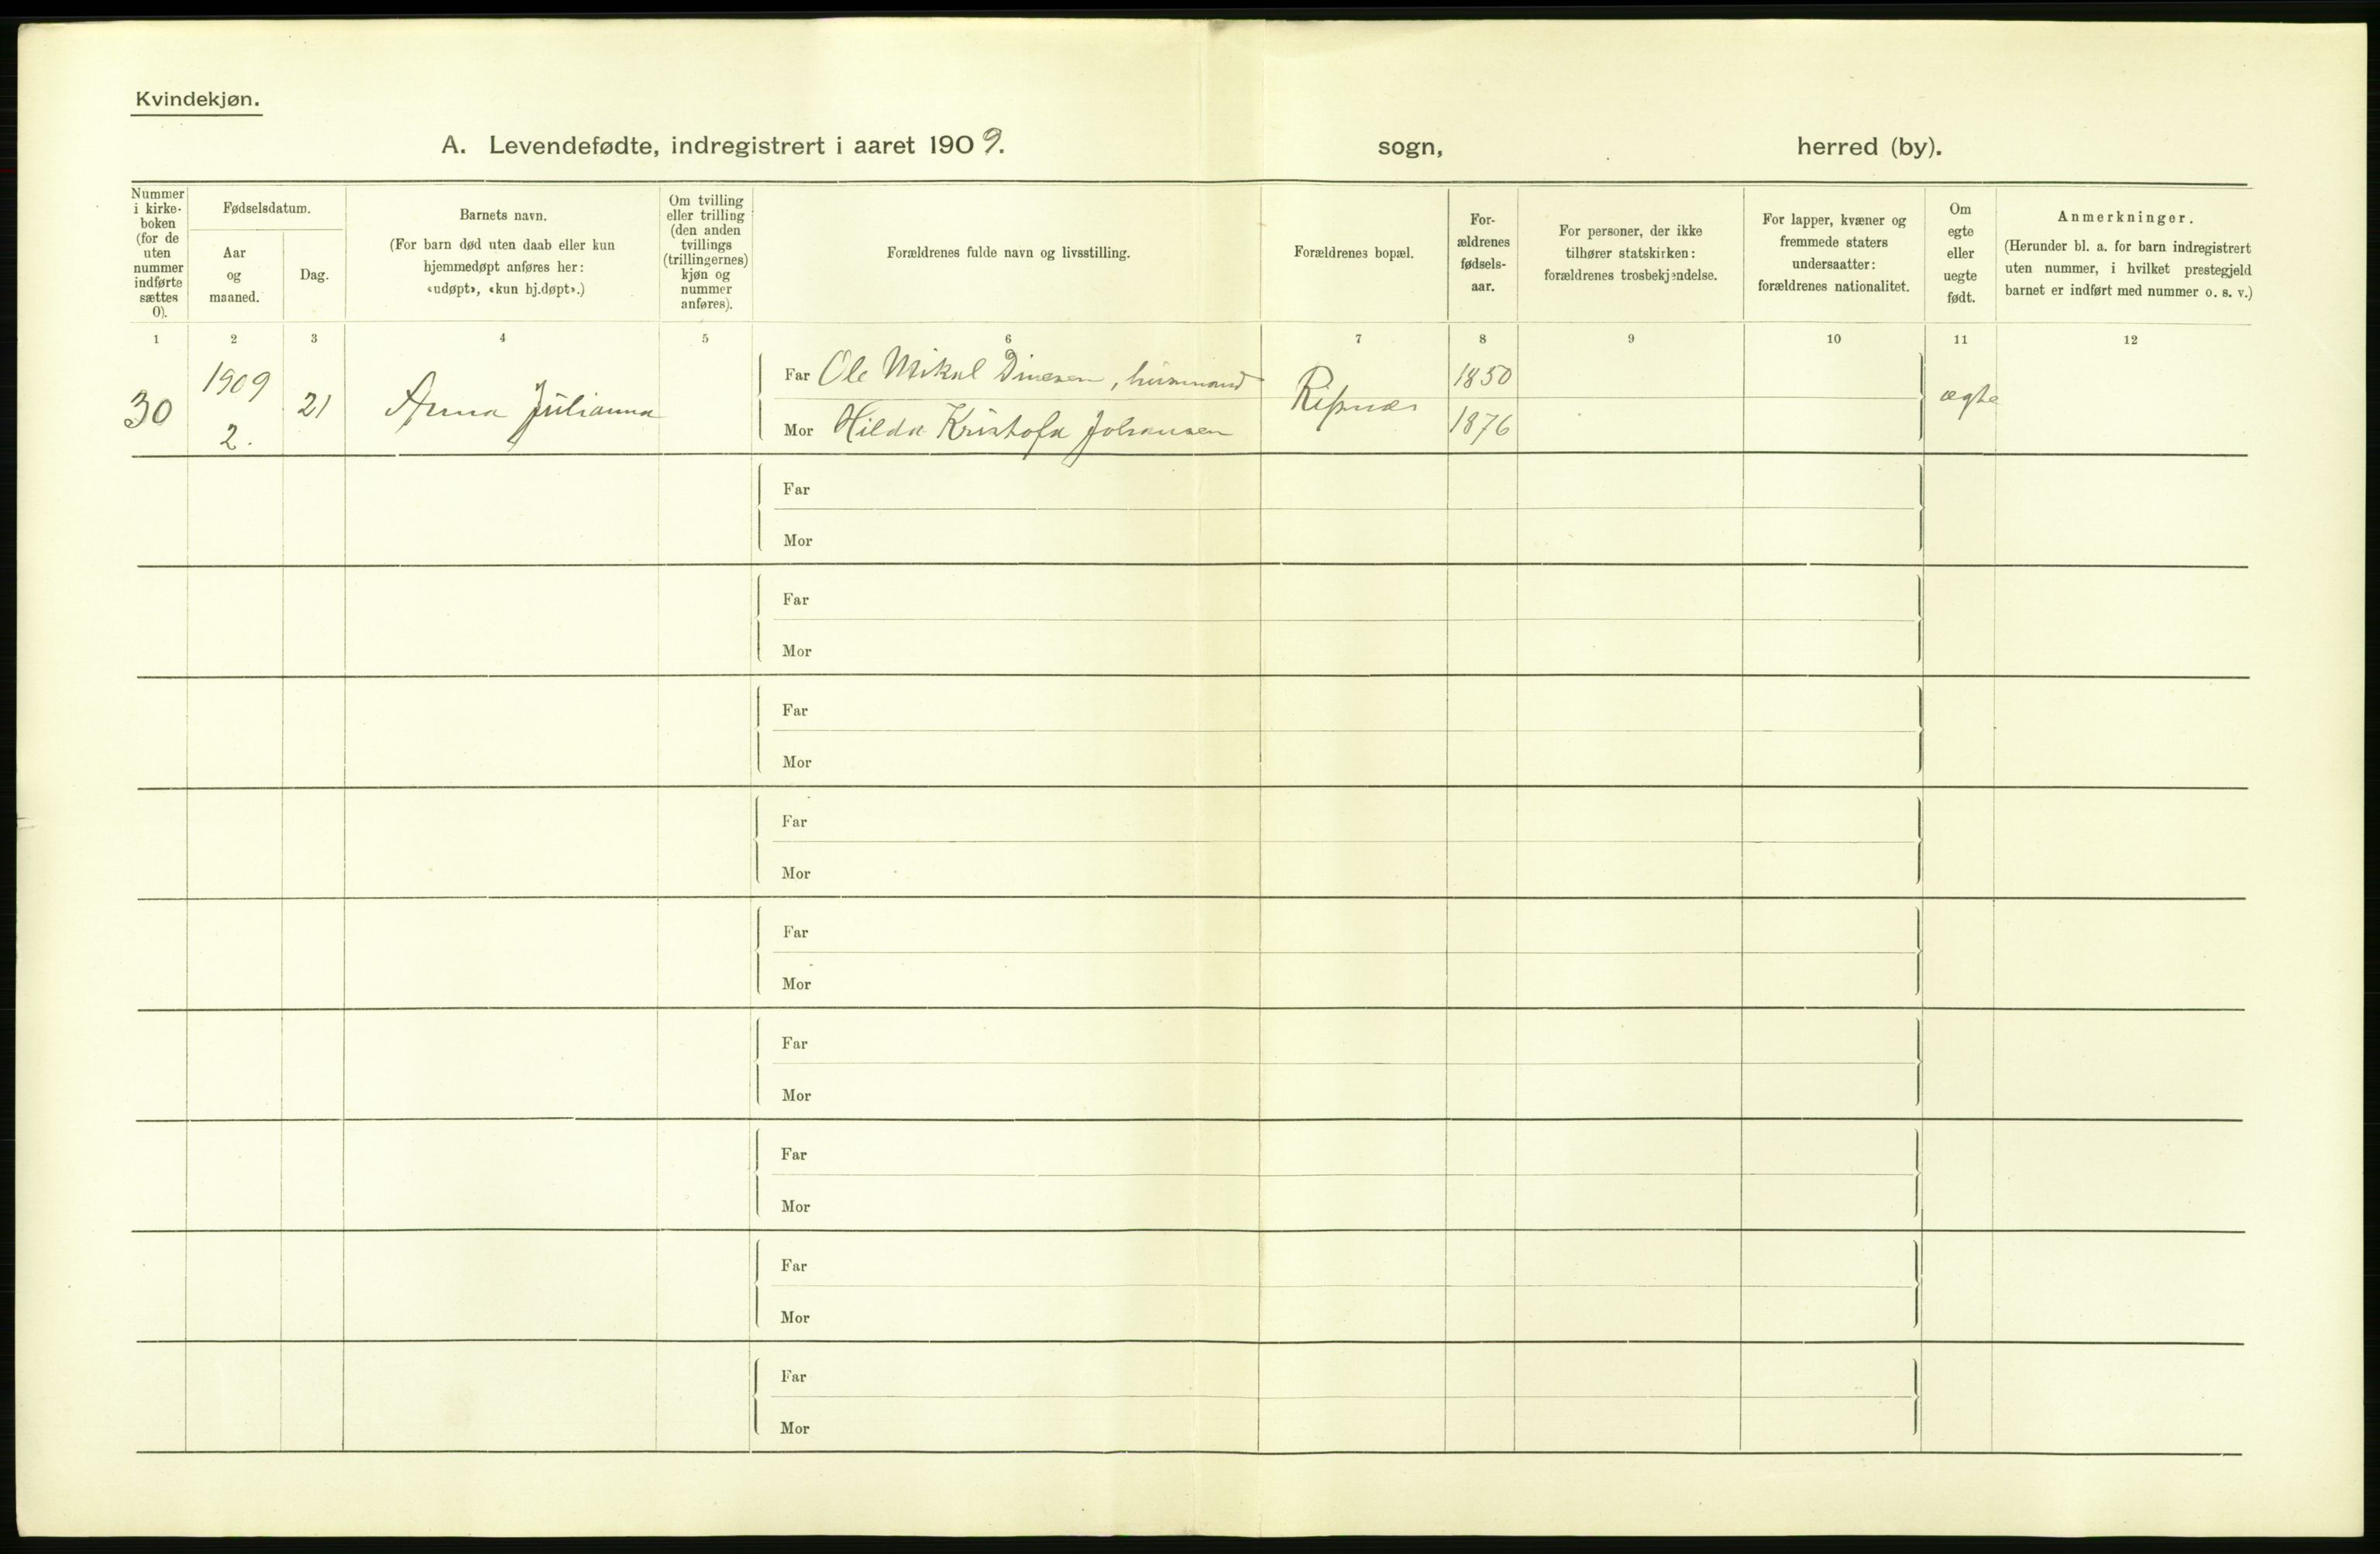 Kvindekjøn.
A. Levendefødte, indregistrert i aaret 1909.
sogn,
herred (by).
Nummer
i kirke-
boken
(for de
uten
nummer
indførte
sættes
0).
Fødselsdatum.
Aar
og
maaned.
Dag.
Barnets navn.
(For barn død uten daab eller kun
hjemmedøpt anføres her:
«udøpt», «kun hj.døpt».)
Om tvilling
eller trilling
(den anden
tvillings
(trillingernes)
kjøn og
nummer
anføres).
Forældrenes fulde navn og livsstilling.
Forældrenes bopæl.
For-
ældrenes
fødsels-
aar.
For personer, der ikke
tilhører statskirken:
forældrenes trosbekjendelse.
For lapper, kvæner og
fremmede staters
undersaatter:
forældrenes nationalitet.
Om
egte
eller
uegte
født.
Anmerkninger.
(Herunder bl. a. for barn indregistrert
uten nummer, i hvilket prestegjeld
barnet er indført med nummer o. s. v.)
1 2 3 4 5 6 7 8 9 10 11 12
30
1909
2.
21
Anna Julianna
Far Ole Mikal Dinesen, husmand
Mor Hilda Kristofa Johansen
1850
1876
ægte
Far
Mor
Far
Mor
Far
Mor
Far
Mor
Far
Mor
Far
Mor
Far
Mor
Far
Mor
Far
Mor